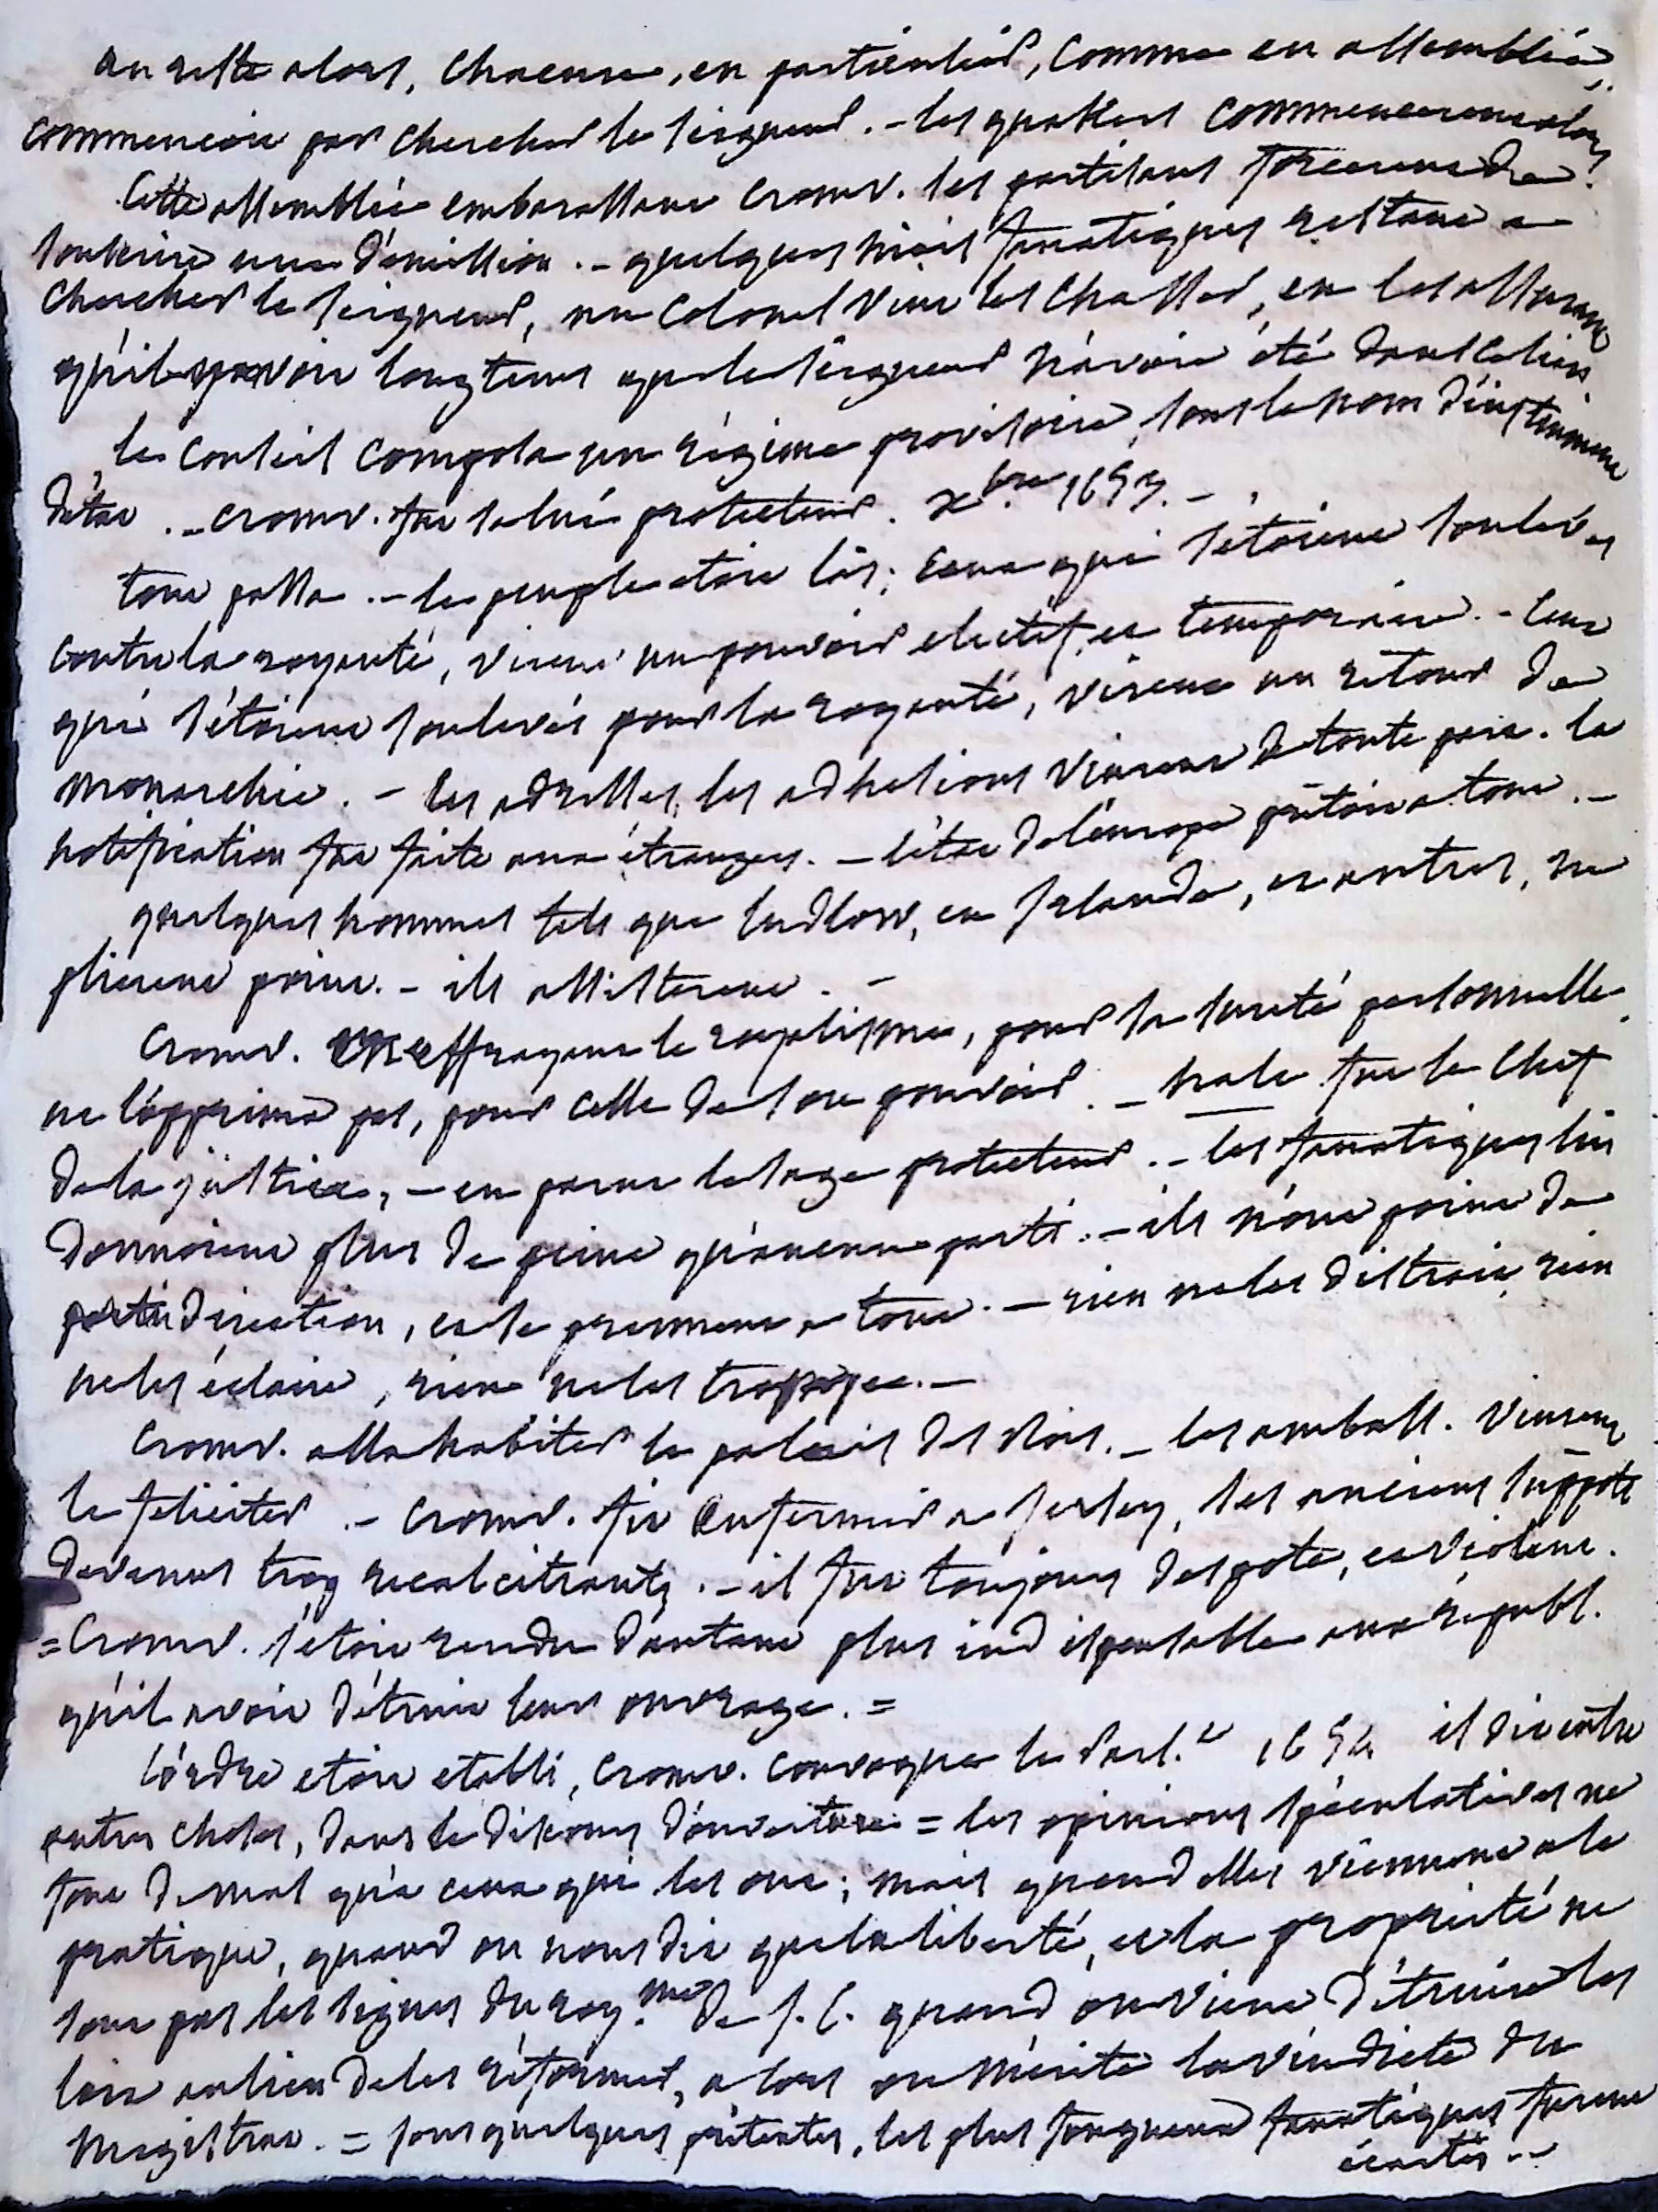 au reste alors, chacune, en particulier, comme en assemblée,
commencoit par chercher le seigneur. - les quakers commencerent alors.
cette assemblée embarassant cromv. les partisans forcerent de
souscrire une démission. - quelques niais fanatiques restant a
chercher le seigneur, un colonel vint les chasser, en les assurant
qu'il y avoit longtems que le seigneur n'avoit été dans ce lieu
le conseil composa un régime provisoire, sous le nom d'instrument
d'état. - cromv. fut salué protecteur. xbre 1653. -
tout passa. - le peuple etoit las; ceux qui s'étoient soulevés
contre la royauté, virent un pouvoir electif, et temporaire. - ceux
qui s'étoient soulevés pour la royauté, virent un retour de
monarchie. - les adresses, les adhesions vinrent de toute part. la
notification fut faite aux étrangers. - l'état de l'europe prêtoit a tout. -
quelques hommes tels que ludlow, en Irlande, et autres, ne
plierent point. - ils assisterent. -
cromv. en effrayant le royalisme, pour sa sureté personnelle
ne l'opprima pas, pour celle de son pouvoir. - hale fut le chef
de la justice, - en parut le sage protecteur. - les fanatiques lui
donnoient plus de peine qu'aucun parti. - ils n'ont point de
direction, et se prennent a tout. - rien ne les distrait, rien
ne les éclaire, rien ne les
cromv. alla habiter le palais des Rois. - les ambass. vinrent
le feliciter. - cromv. fit enfermer a Jersey, ses anciens suppots
devenus trop recalcitrants. - il fut toujours despote, et violent.
= Cromv. s'etoit rendu d'autant plus indispensable aux républ.
qu'il avoit détruit leur ouvrage. =
l'ordre etoit etabli, cromv. convoqua le Parl.t 1654 il dit entre
autres choses, dans le discours d'ouverture = les opinions spéculatives ne
font de mal qu'a ceux qui les ont; mais quand elles viennent a la
pratique, quand on nous dit que la liberté, et la propriété ne
sont pas les signes du roy.me de J. C. quand on vient détruire les
loix au lieu de les réformer, alors on mérite la vindicte du
magistrat. = sous quelques prétextes, les plus fougueux fanatiques furent
écartés. -